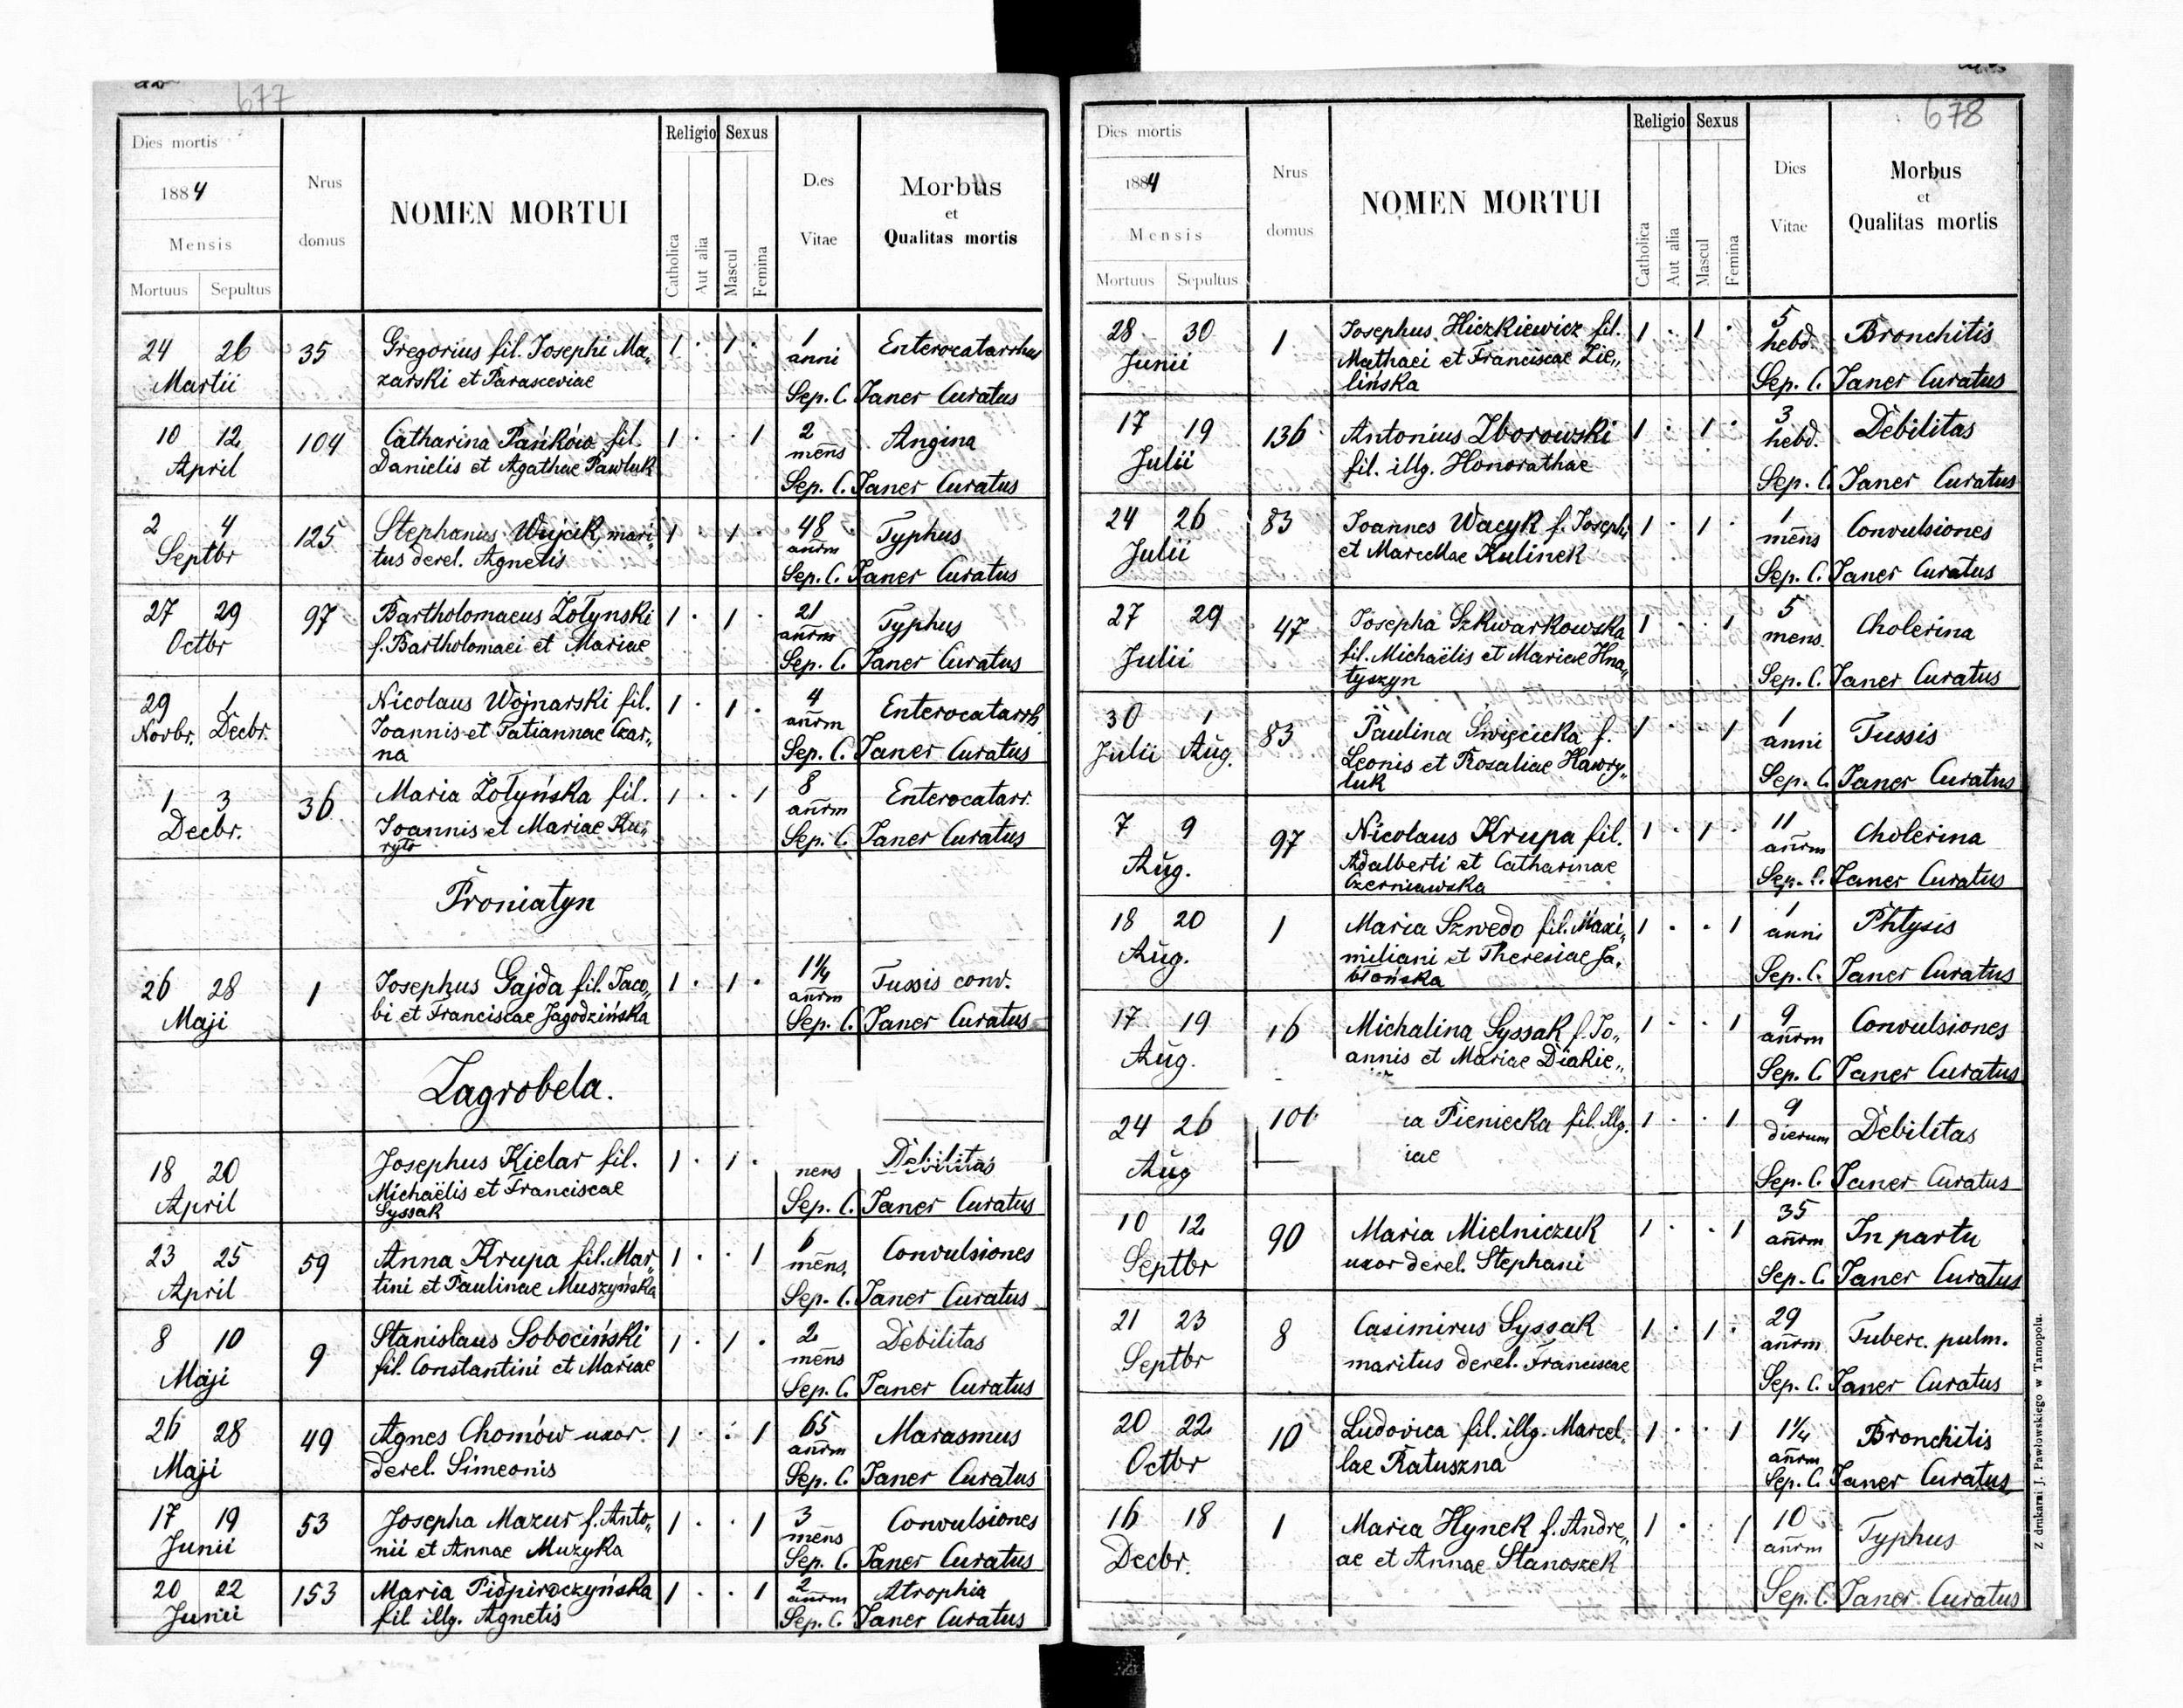 677
Dies mortis
1884
Mensis
Mortuus Sepultus
Nrus
domus
NOMEN MORTUI
Religio Sexus
Catholica
Aut alia
Mascul
Femina
Dies
Vitae
Morbus
et
Qualitas mortis
24 26 35 Gregorius fil. Josephi Ma„ 1 . 1 . 1 Enterocatarrhus
Martii zarski et Parasceviae anni
Sep. C. Janer Curatus
10 12 104 Catharina Pańków fil. 1 . . 1 2 Angina
April Danielis et Agathae Pawluk mens
Sep. C. Janer Curatus
2 4 125 Stephanus Wujcik, mari„ 1 . 1 . 48 Typhus
Septbr tus derel. Agnetis añrm
Sep. C. Janer Curatus
27 29 97 Bartholomaeus Żołynski 1 . 1 . 21 Typhus
Octbr f. Bartholomaei et Mariae añrm
Sep. C. Janer Curatus
29 1 Nicolaus Wojnarski fil. 1 . 1 . 4 Enterocatarrh.
Novbr. Decbr. Joannis et Tatiannae Czar„ añrm
na Sep. C. Janer Curatus
1 3 36 Maria Żołyńska fil. 1 . . 1 8 Enterocatarr.
Decbr. Joannis et Mariae Ku„ añrm
ryło Sep. C. Janer Curatus
Proniatyn
26 28 1 Josephus Gajda fil. Jaco„ 1 . 1 . 1¼ Tussis conv.
Maji bi et Franciscae Jagodzińska añrm
Sep. C. Janer Curatus
Zagrobela.
18 20 Josephus Kielar fil. 1 . 1 . Debilitas
April Michaëlis et Franciscae mens
Syssak Sep. C. Janer Curatus
23 25 59 Anna Krupa fil. Mar„ 1 . . 1 6 Convulsiones
April tini et Paulinae Muszyńska mens.
Sep. C. Janer Curatus
8 10 9 Stanislaus Sobociński 1 . 1 . 2 Debilitas
Maji fil. Constantini et Mariae mens
Sep. C. Janer Curatus
26 28 49 Agnes Chomów uxor 1 . . 1 65 Marasmus
Maji derel. Simeonis añrm
Sep. C. Janer Curatus
17 19 53 Josepha Mazur f. Anto„ 1 . . 1 3 Convulsiones
Junii nii et Annae Muzyka mens
Sep. C. Janer Curatus
20 22 153 Maria Pidpiroczyńska 1 . . 1 2 Atrophia
Junii fil illg. Agnetis añrm
Sep. C. Janer Curatus
678
Dies mortis
1884
Mensis
Mortuus Sepultus
Nrus
domus
NOMEN MORTUI
Religio Sexus
Catholica
Aut alia
Mascul
Femina
Dies
Vitae
Morbus
et
Qualitas mortis
28 30 1 Josephus Hiczkiewicz fil. 1 . 1 . 5 Bronchitis
Junii Mathaei et Franciscae Zie„ hebd.
lińska Sep. C. Janer Curatus
17 19 136 Antonius Zborowski 1 . 1 . 3 Debilitas
Julii fil. illg. Honorathae hebd.
Sep. C. Janer Curatus
24 26 83 Joannes Wacyk f. Josephi 1 . 1 . 1 Convulsiones
Julii et Marcellae Kulinek mens
Sep. C. Janer Curatus
27 29 47 Josepha Szkwarkowska 1 . . 1 5 Cholerina
Julii fil. Michaëlis et Mariae Hna„ mens.
tyszyn Sep. C. Janer Curatus
30 1 83 Paulina Święcicka f. 1 . . 1 1 Tussis
Julii Aug. Leonis et Rosaliae Hawry„ anni
luk Sep. C. Janer Curatus
7 9 97 Nicolaus Krupa fil. 1 . 1 . 11 Cholerina
Aug. Adalberti et Catharinae añrm
Czerniawska Sep. C. Janer Curatus
18 20 1 Maria Szwedo fil. Maxi„ 1 . . 1 1 Phtysis
Aug. miliani et Theresiae Ja„ anni
błońska Sep. C. Janer Curatus
17 19 16 Michalina Syssak f. Jo„ 1 . . 1 9 Convulsiones
Aug. annis et Mariae Diakie„ añrm
Sep. C. Janer Curatus
24 26 101 ia Pieniecka fil. illg. 1 . . 1 9 Debilitas
Aug iae dierum
Sep. C. Janer Curatus
10 12 90 Maria Mielniczuk 1 . . 1 35 In partu
Septbr uxor derel. Stephani añrm
Sep. C. Janer Curatus
21 23 8 Casimirus Syssak 1 . 1 . 29 Tuberc. pulm.
Septbr maritus derel. Franciscae añrm
Sep. C. Janer Curatus
20 22 10 Ludovica fil. illg. Marcel„ 1 . . 1 1¼ Bronchitis
Octbr lae Ratuszna añrm
Sep. C. Janer Curatus
16 18 1 Maria Hynek f. Andre„ 1 . . 1 10 Typhus
Decbr. ae et Annae Stanoszek añrm
Sep. C. Janer Curatus
Z drukarni J. Pawłowskiego w Tarnopolu.